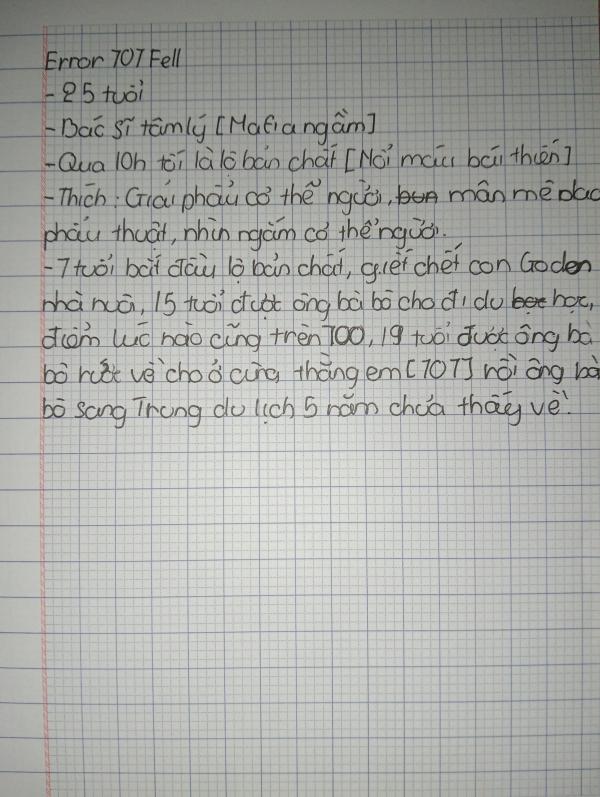 Error 707 Fell
- 25 tuổi
- Bác sĩ tâm lý [Mafia ngầm]
- Qua 10h tối là lộ bản chất [Nổi máu bái thiến]
- Thích: Giải phẩu cơ thể người, mân mê dao
phẩu thuật, nhìn ngắm cơ thể người.
- 7 tuổi bắt đầu lộ bản chất, giết chết con Goden
nhà nuôi, 15 tuổi được ông bà bô cho đi du học,
điểm lúc nào cũng trên 700, 19 tuổi được ông bà
bô rướt về cho ở cùng thằng em [707] rồi ông bà
bô sang Trung du lịch 5 năm chưa thấy về.